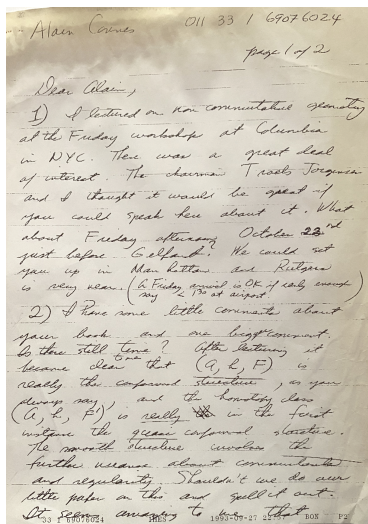 Alain Connes 011 33 1 69076024
page 1 of 2
Dear Alain,
1) I lectured on non commutative geometry
at the Friday workshop at Columbia
in NYC. There was a great deal
of interest. The chairman Troels Jorgensen
and I thought it would be great if
you could speak here about it. What
about Friday afternoon October 22nd
just before Gelfand. We could set
you up in Manhattan and Rutgers
is very near. (A Friday arrival is OK if early enough
say ≤ 130 at airport.)
2) I have some little comments about
your book and one bigger comment.
Is there still time? After lecturing it
became clear to me that (A, h, F) is
really the conformal structure, as you
always say, and the homotopy class
(A, h, F) is really in the first
instance the quasi conformal structure
The smooth structure involves the
further nuance about commutators
and regularity. Shouldn't we do our
little paper on this and spell it out.
It seems amazing to me that
33 1 69076024 IHES 1993-09-27 22: BON P2